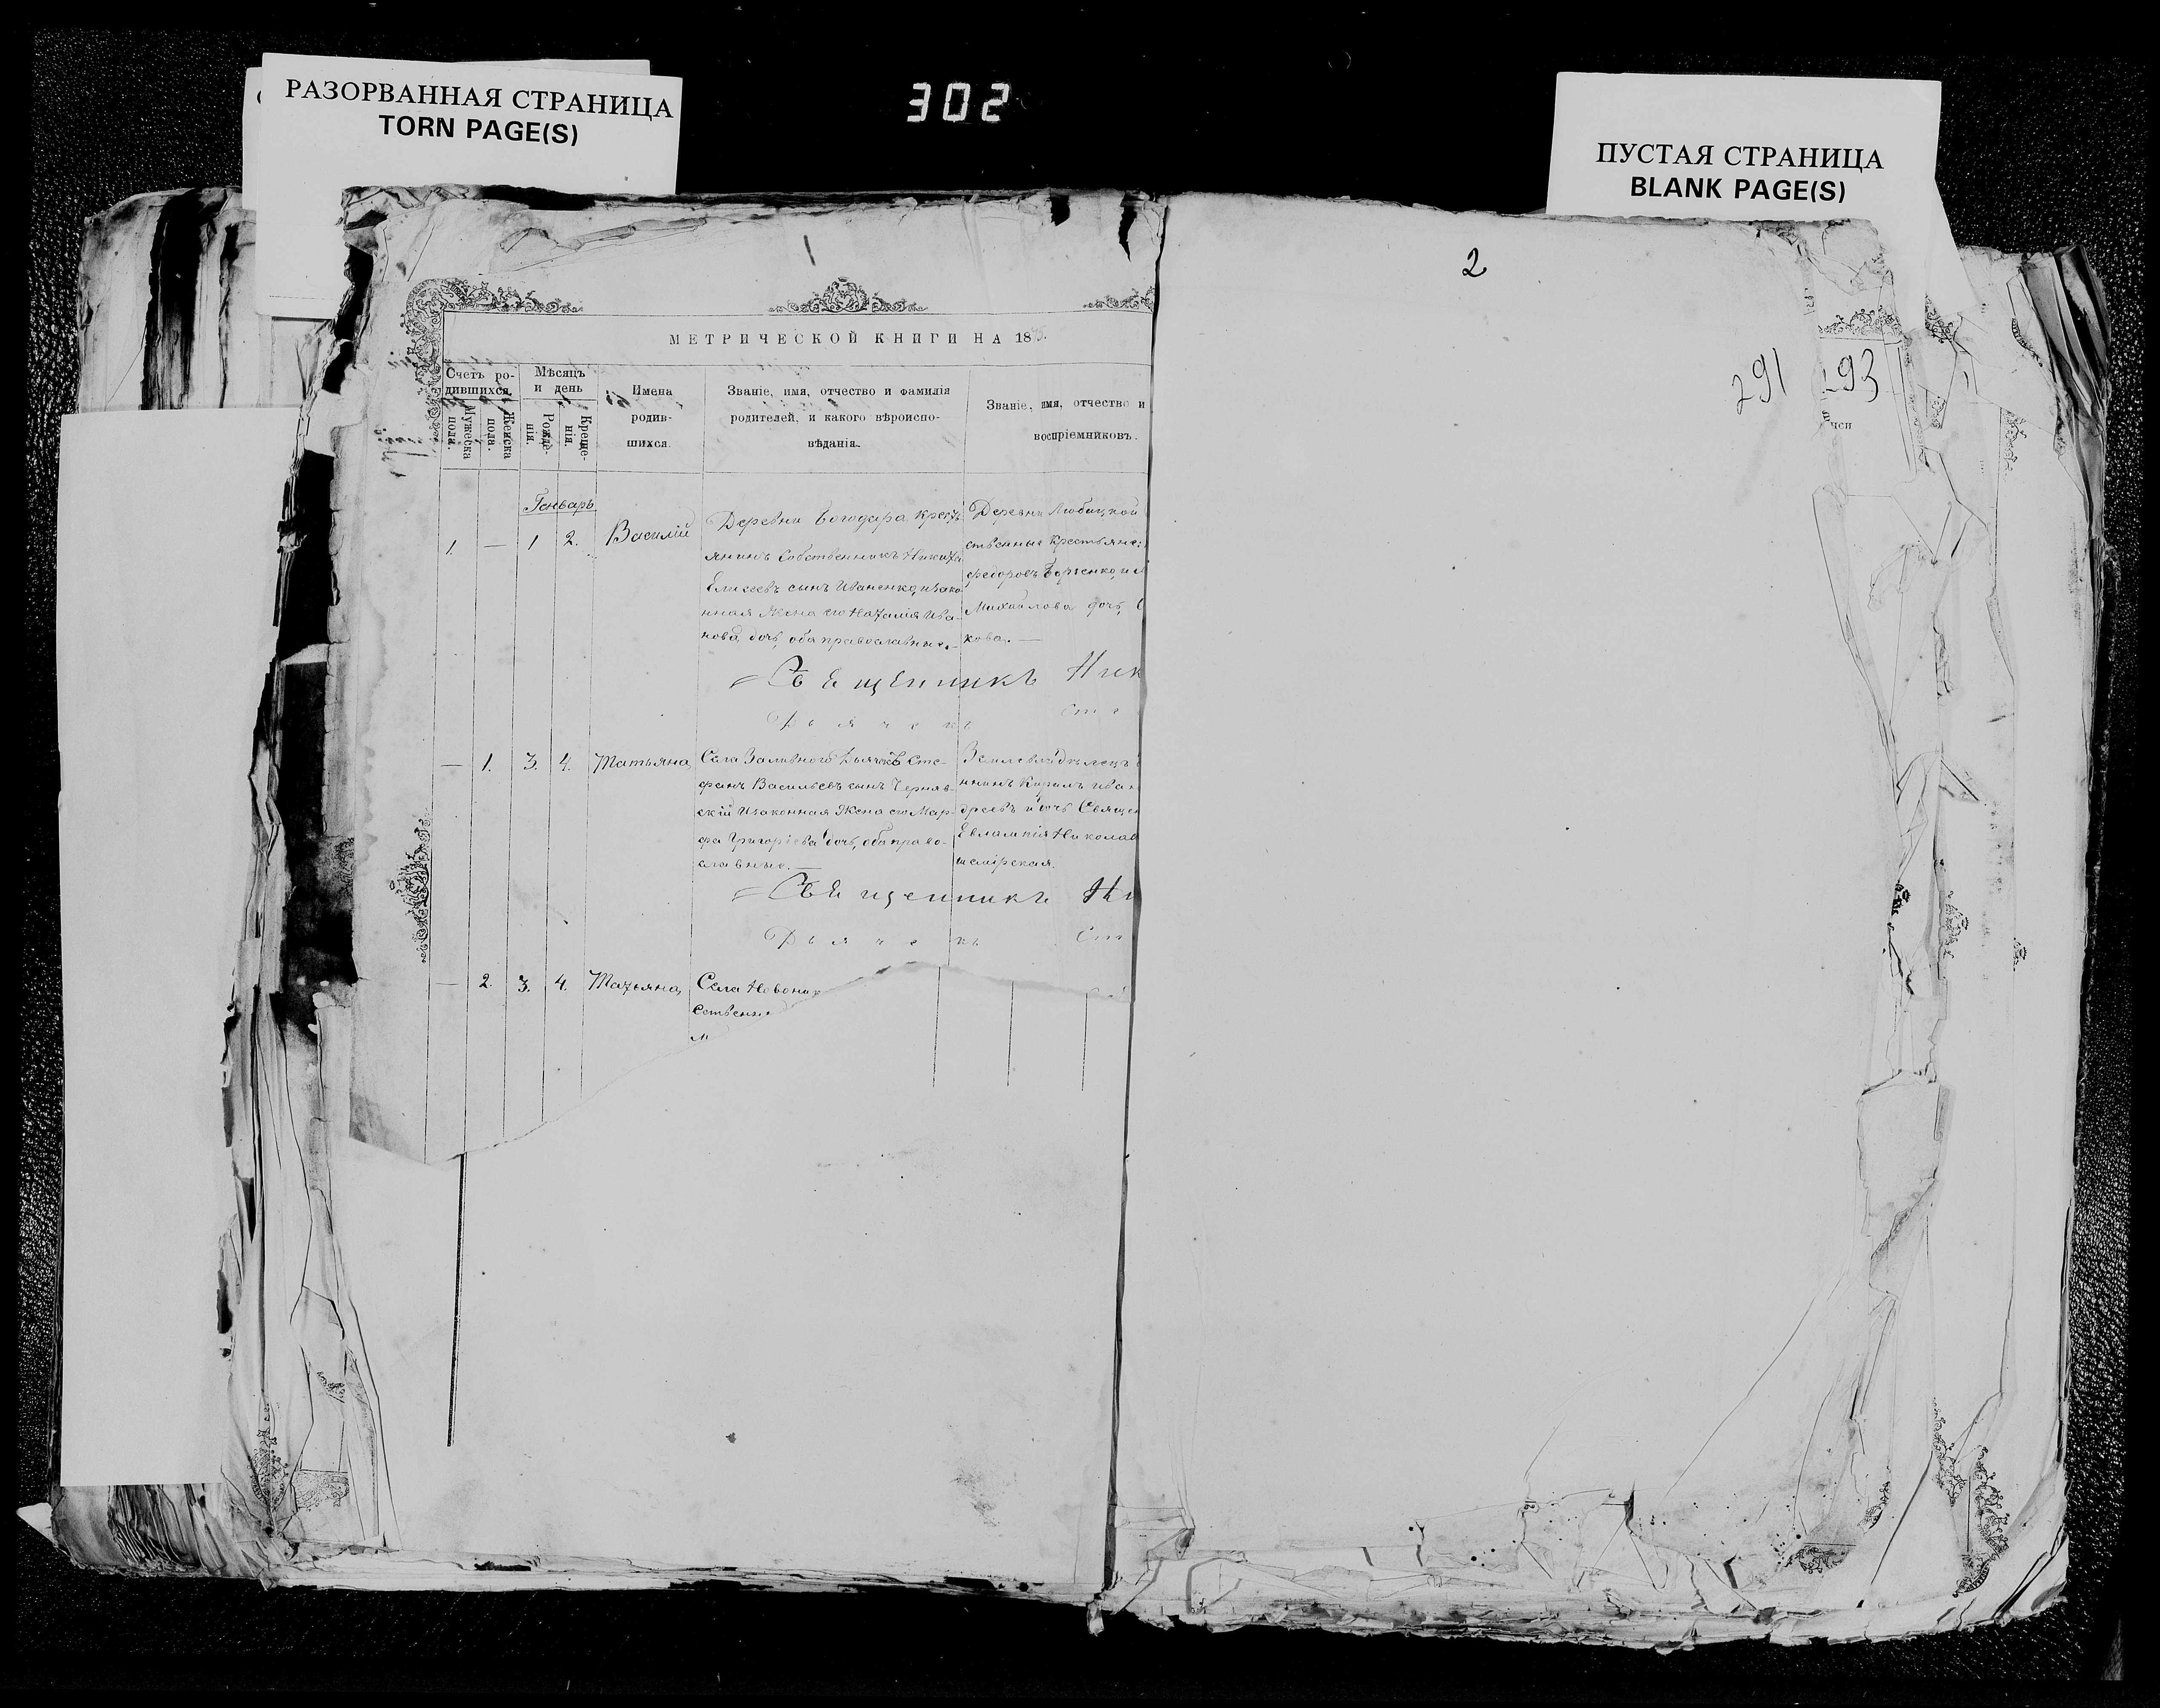 РАЗОРВАННАЯ СТРАНИЦА
TORN PAGE(S)
302
ПУСТАЯ СТРАНИЦА
BLANK PAGE(S)
1
2
МЕТРИЧЕСКОЙ КНИГИ НА 18
291
93
Счетъ ро-
дившихся.
Мужеска
пола.
Женска
пола.
Мѣсяцъ
и день
Рожде-
нія.
Креще-
нія.
Имена
родив-
шихся.
Званіе, имя, отчество и фамилія
родителей, и какого вѣроиспо-
вѣданія.
Званіе, имя, отчество и
воспріемниковъ.
Генварь
1. — 1 2. Василій
Деревни Богодара крестъ-
янинъ Собственникъ Никита
Елисеевъ сынъ Иваненко, и зако-
нная Жена его Наталія Ива-
нова дочь, оба православные.
Деревни Любицкой
ственные крестьяне:
Федоровъ Борзенко, и
Михайлова дочь,
кова. —
Священникъ Ник
Дьячекъ Сте
— 1. 3. 4. Татьяна
Села Заливного Дьячокъ Сте-
фанъ Васильевъ сынъ Черняв-
скій и законная Жена его Мар-
фа Григоріева дочь, оба право-
славные. —
Землевладѣлецъ
нинъ Кирилъ Иван
дреевъ и дочь Священ
Евлампія Никола
Священникъ Ни
Дьячекъ Сте
— 2. 3. 4. Татьяна,
Села Новони
ственни